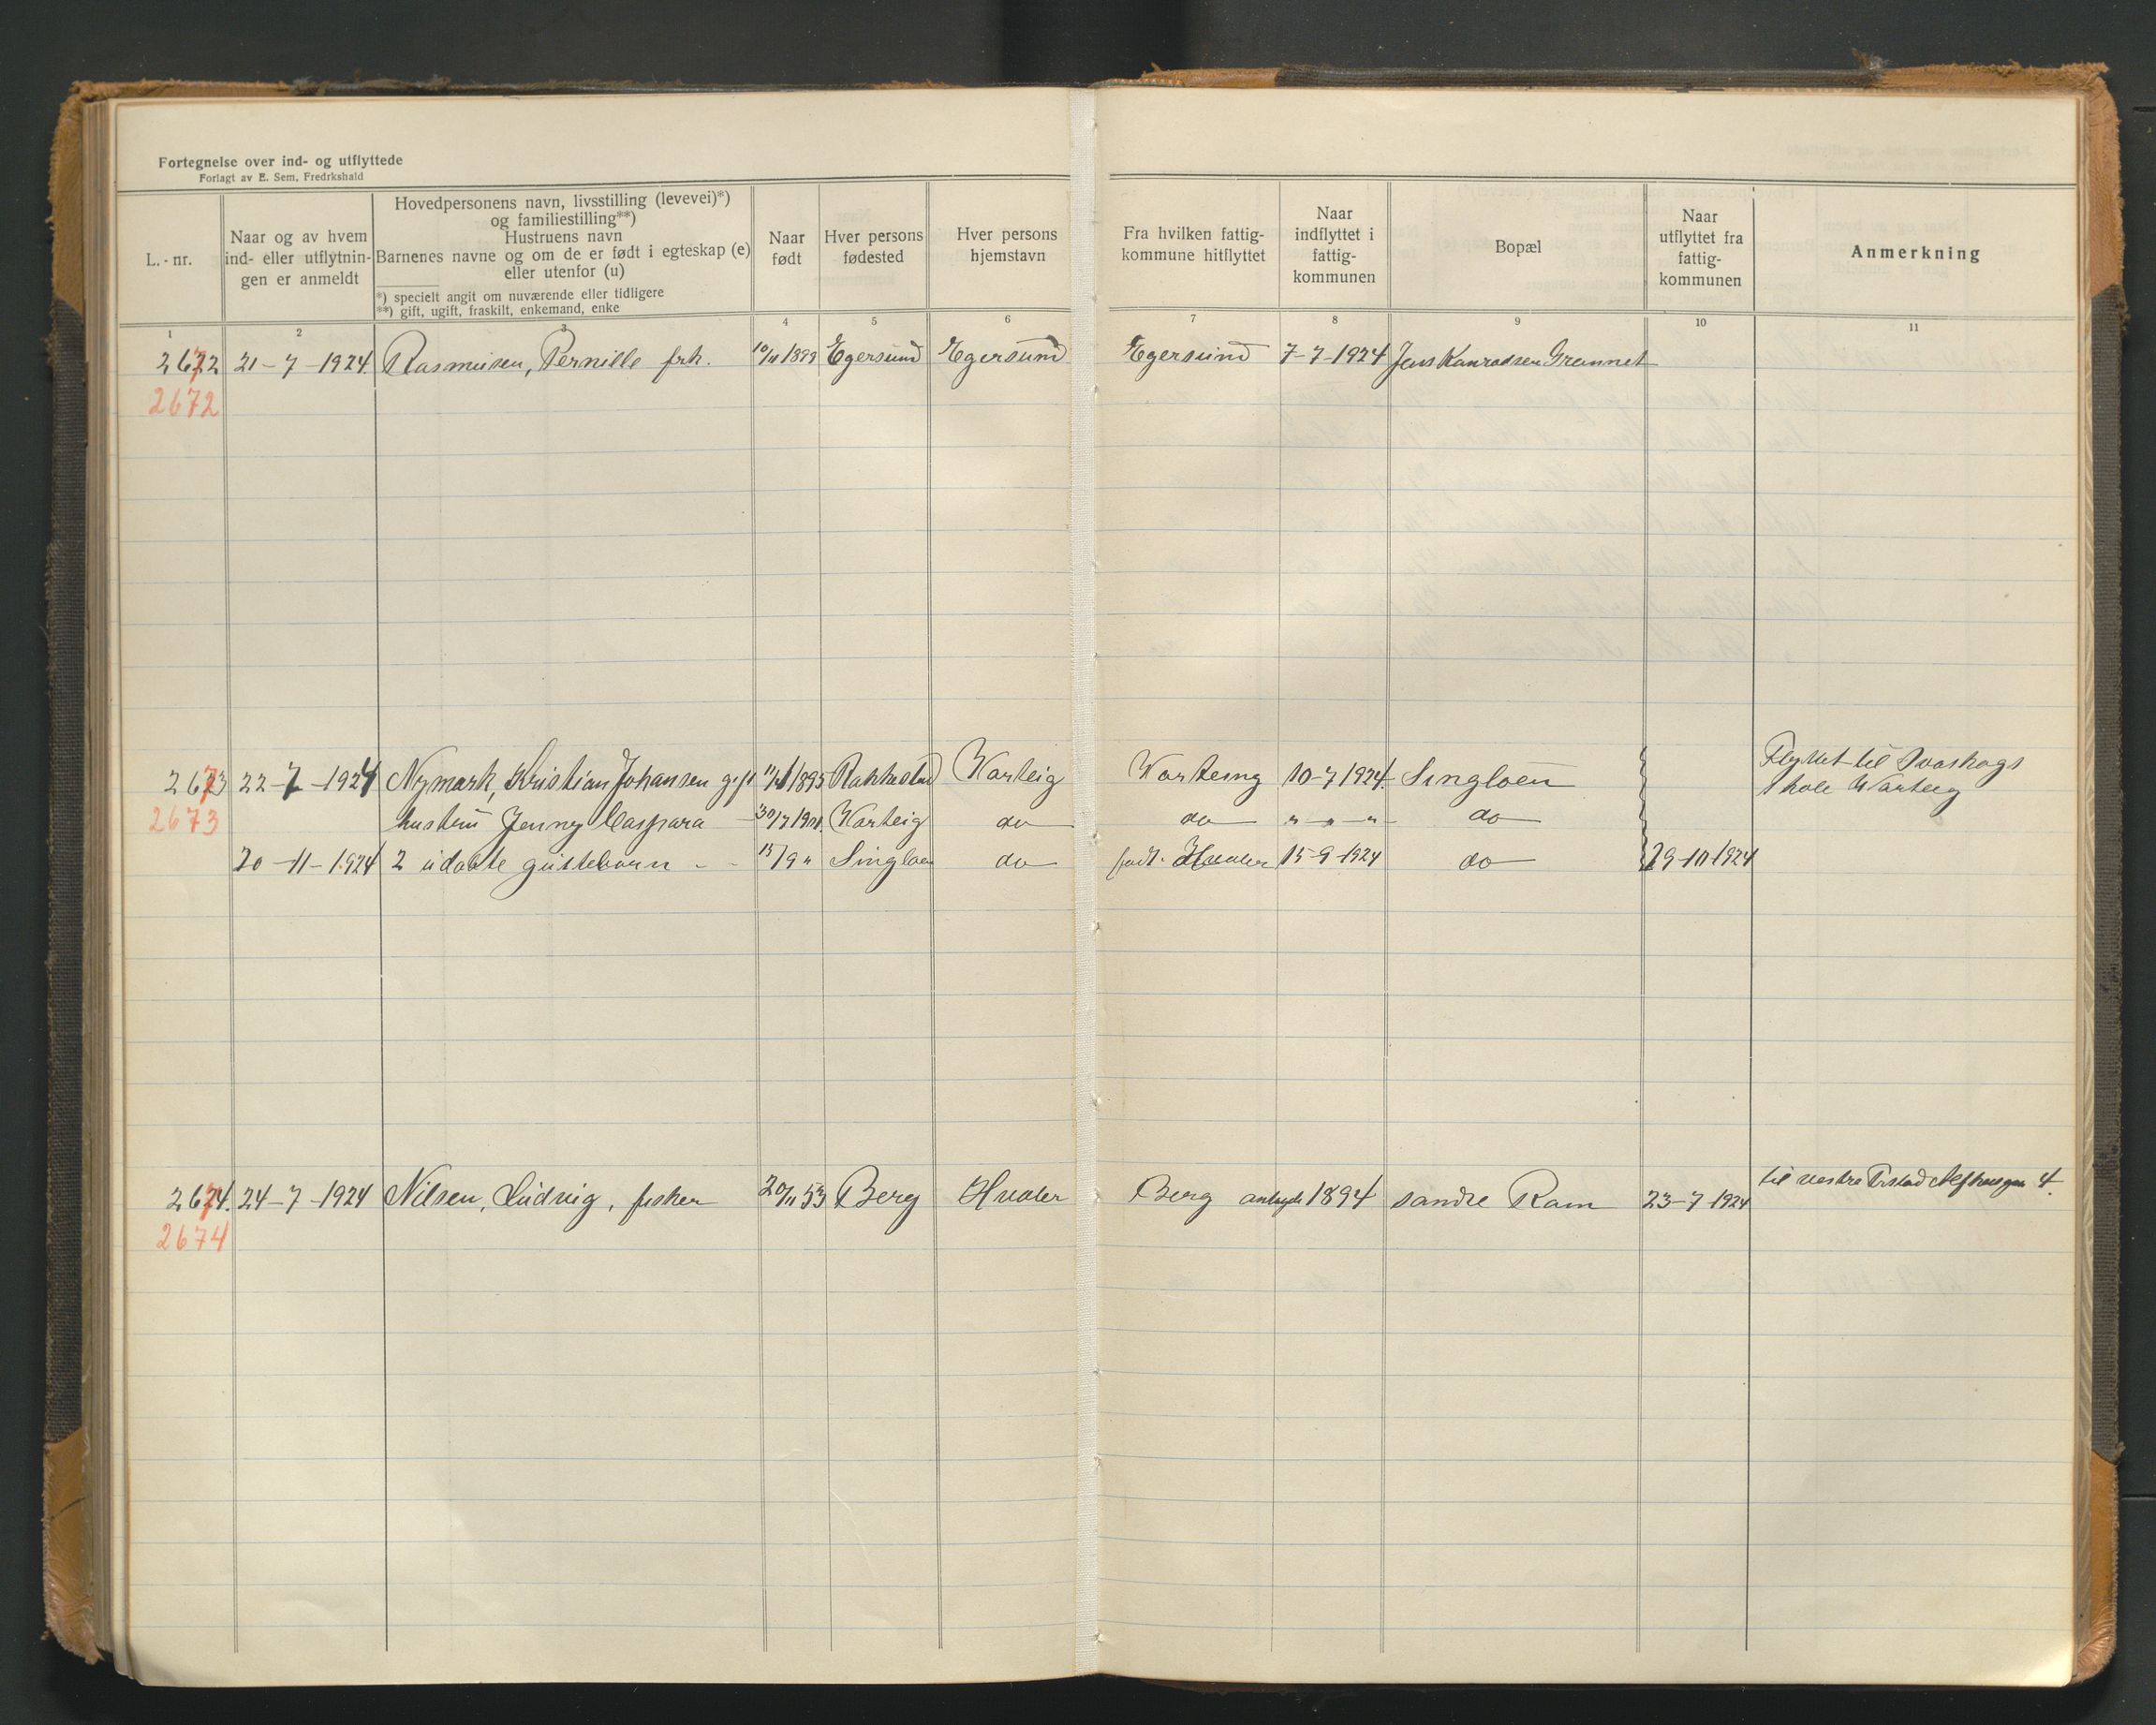 Fortegnelse over ind- og utflyttede
Forlagt av E. Sem, Fredrkshald
L. - nr.
Naar og av hvem
ind- eller utflytnin-
gen er anmeldt
Hovedpersonens navn, livsstilling (levevei)*)
og familiestilling**)
Hustruens navn
Barnenes navne og om de er født i egteskap (e)
eller utenfor (u)
*) specielt angit om nuværende eller tidligere
**) gift, ugift, fraskilt, enkemand, enke
Naar
født
Hver persons
fødested
Hver persons
hjemstavn
Fra hvilken fattig-
kommune hitflyttet
Naar
indflyttet i
fattig-
kommunen
Bopæl
Naar
utflyttet fra
fattig-
kommunen
Anmerkning
1 2 3 4 5 6 7 8 9 10 11
2672 21-7-1924 Rasmusen, Pernille frk. 10/11 1899 Egersund Egersund Egersund 7-7-1924 Jens Konradsen Grønnet
2672
2673 22-7-1924 Nymark, Kristian Johansen gift 1895 Rakkestad Varteig Varteig 10-7 1924 Singløen Flyttet til
Varteig
2673 hustru Jenny Caspara 30/7 Varteig do do " - " - " do
20-11-1924 2 udøbte guttebørn - - 15/9 " Singløen do født Hvaler 15-9-1924 do 29-10-1924
2674. 24-7-1924 Nilsen, Ludvig, fisker 20/11 53 Berg Hvaler Berg 1894 søndre Ram 23-7-1924 til vestre
2674